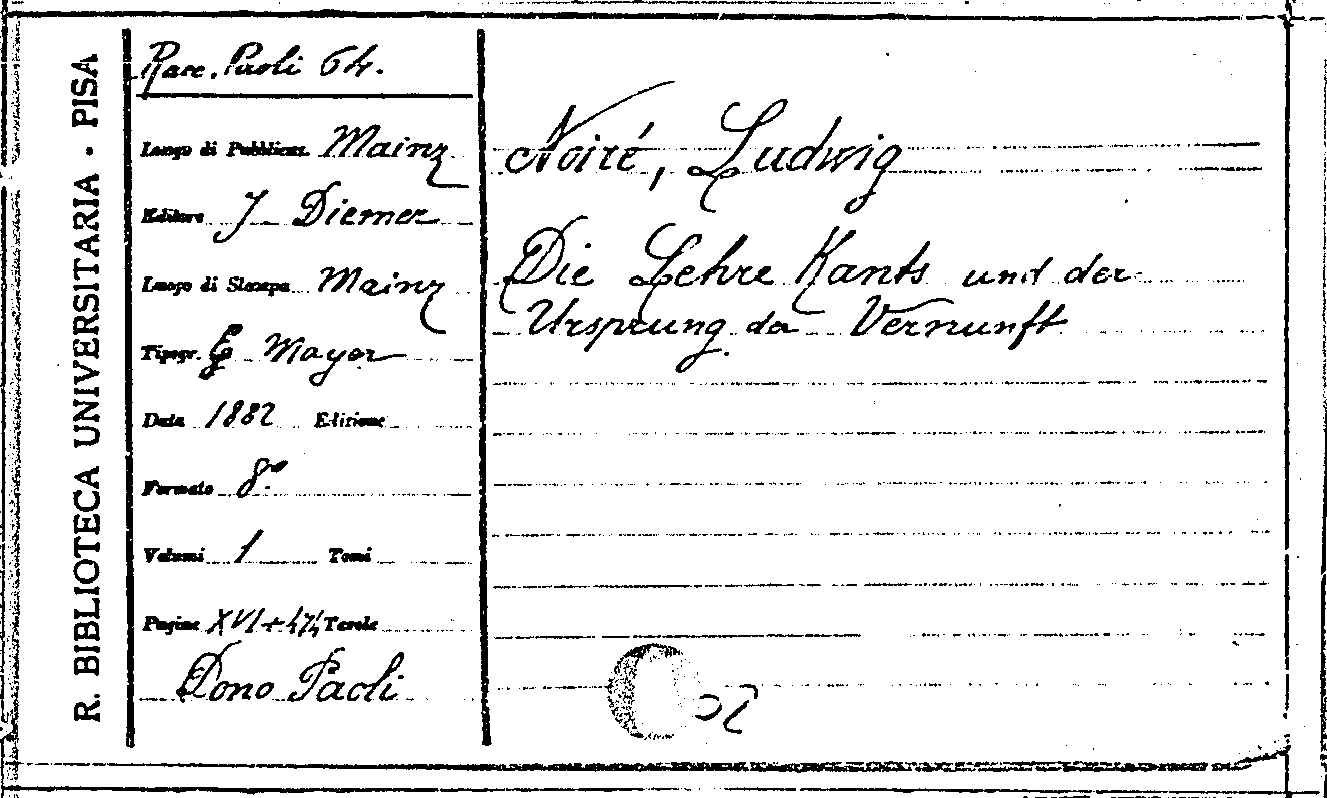 R. BIBLIOTECA UNIVERSITARIA - PISA
Racc. Paoli 64.
Luogo di Pubblicaz. Mainz
Editore J Diemer
Luogo di Stampa Mainz
Tipogr. Mayer
Data 1882 Edizione
Formato 8°
Volumi 1 Tomi
Pagine XVI + 474 Tavole
Dono Paoli
Noiré, Ludwig
Die Lehre Kants und der
Ursprung der Vernunft